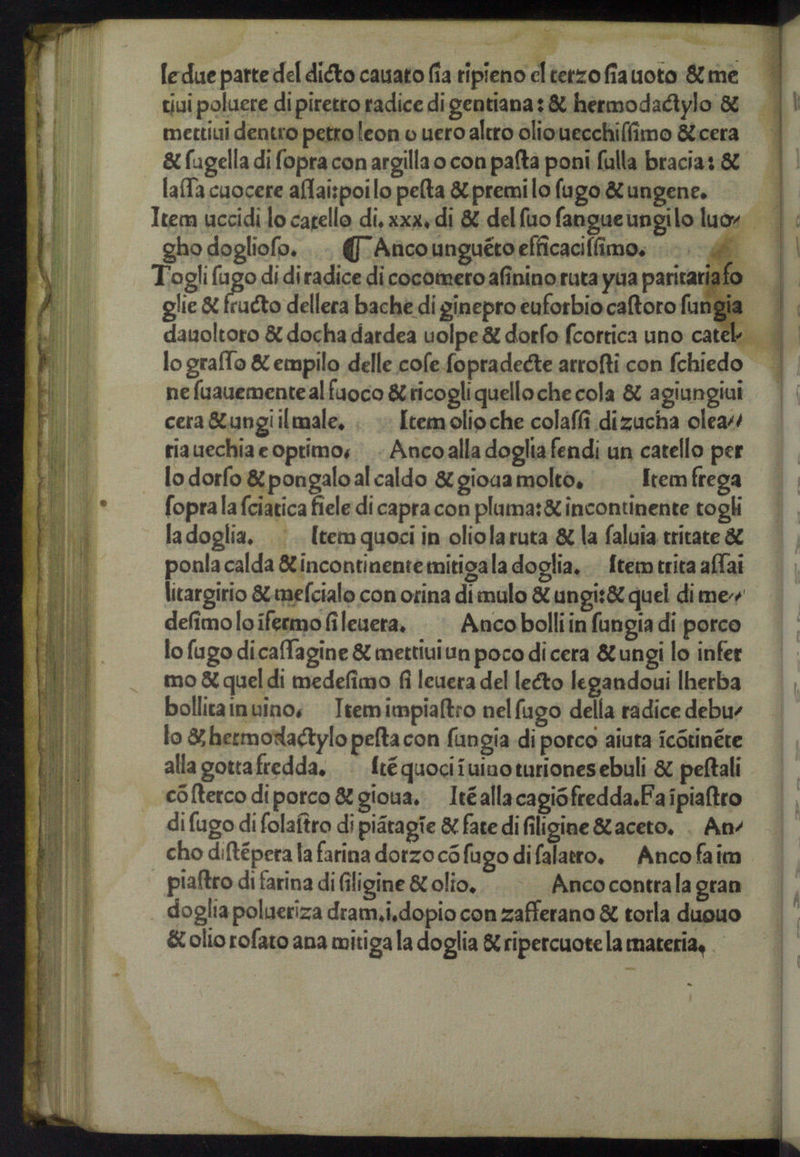 le due parte del dicto cauato ſia ripieno el terzo ſia uoto & me
tiui poluere di piretro radice di gentiana: & hermodactylo &
mettiui dentro petro leon o uero altro olio uecchiſſimo & cera
& ſugella di ſopra con argilla o con paſta poni ſulla bracia: &
laſſa cuocere aſſai: poi lo peſta & premi lo ſugo & ungene.
Item uccidi lo catello di. xxx. di & del ſuo ſangue ungi lo luo-
gho doglioſo. ¶ Anco unguēto efficaciſſimo.
Togli ſugo di di radice di cocomero aſinino ruta yua paritaria fo
glie & fructo dellera bache di ginepro euforbio caſtoro ſungia
dauoltoro & docha dardea uolpe & dorſo ſcortica uno catel-
lo graſſo & empilo delle coſe ſopradecte arroſti con ſchiedo
ne ſuauemente al fuoco & ricogli quello che cola & agiungiui
cera & ungi il male. Item olio che colaſſi di zucha olea-
ria uechia e optimo. Anco alla doglia fendi un catello per
lo dorſo & pongalo al caldo & gioua molto. Item frega
ſopra la ſciatica fiele di capra con pluma: & incontinente togli
la doglia. Item quoci in olio la ruta & la ſaluia tritate &
ponla calda & incontinente mitiga la doglia. Item trita aſſai
litargirio & meſcialo con orina di mulo & ungi: & quel di me-
deſimo lo īfermo ſi leuera. Anco bolli in ſungia di porco
lo ſugo di caſſagine & mettiui un poco di cera & ungi lo infer
mo & quel di medeſimo ſi leuera del lecto legandoui lherba
bollita in uino. Item impiaſtro nel ſugo della radice debu-
lo & hermodactylo peſta con ſungia di porco aiuta īcōtinēte
alla gotta fredda. Itē quoci ī uino turiones ebuli & peſtali
cō ſterco di porco & gioua. Itē alla cagiō fredda. Fa īpiaſtro
di ſugo di ſolaſtro di piātagīe & fate di ſiligine & aceto. An-
cho diſtēpera la farina dorzo cō ſugo di ſalatro. Anco fa im
piaſtro di farina di ſiligine & olio. Anco contra la gran
doglia polueriza dram.i. dopio con zafferano & torla duouo
& olio roſato ana mitiga la doglia & ripercuote la materia.